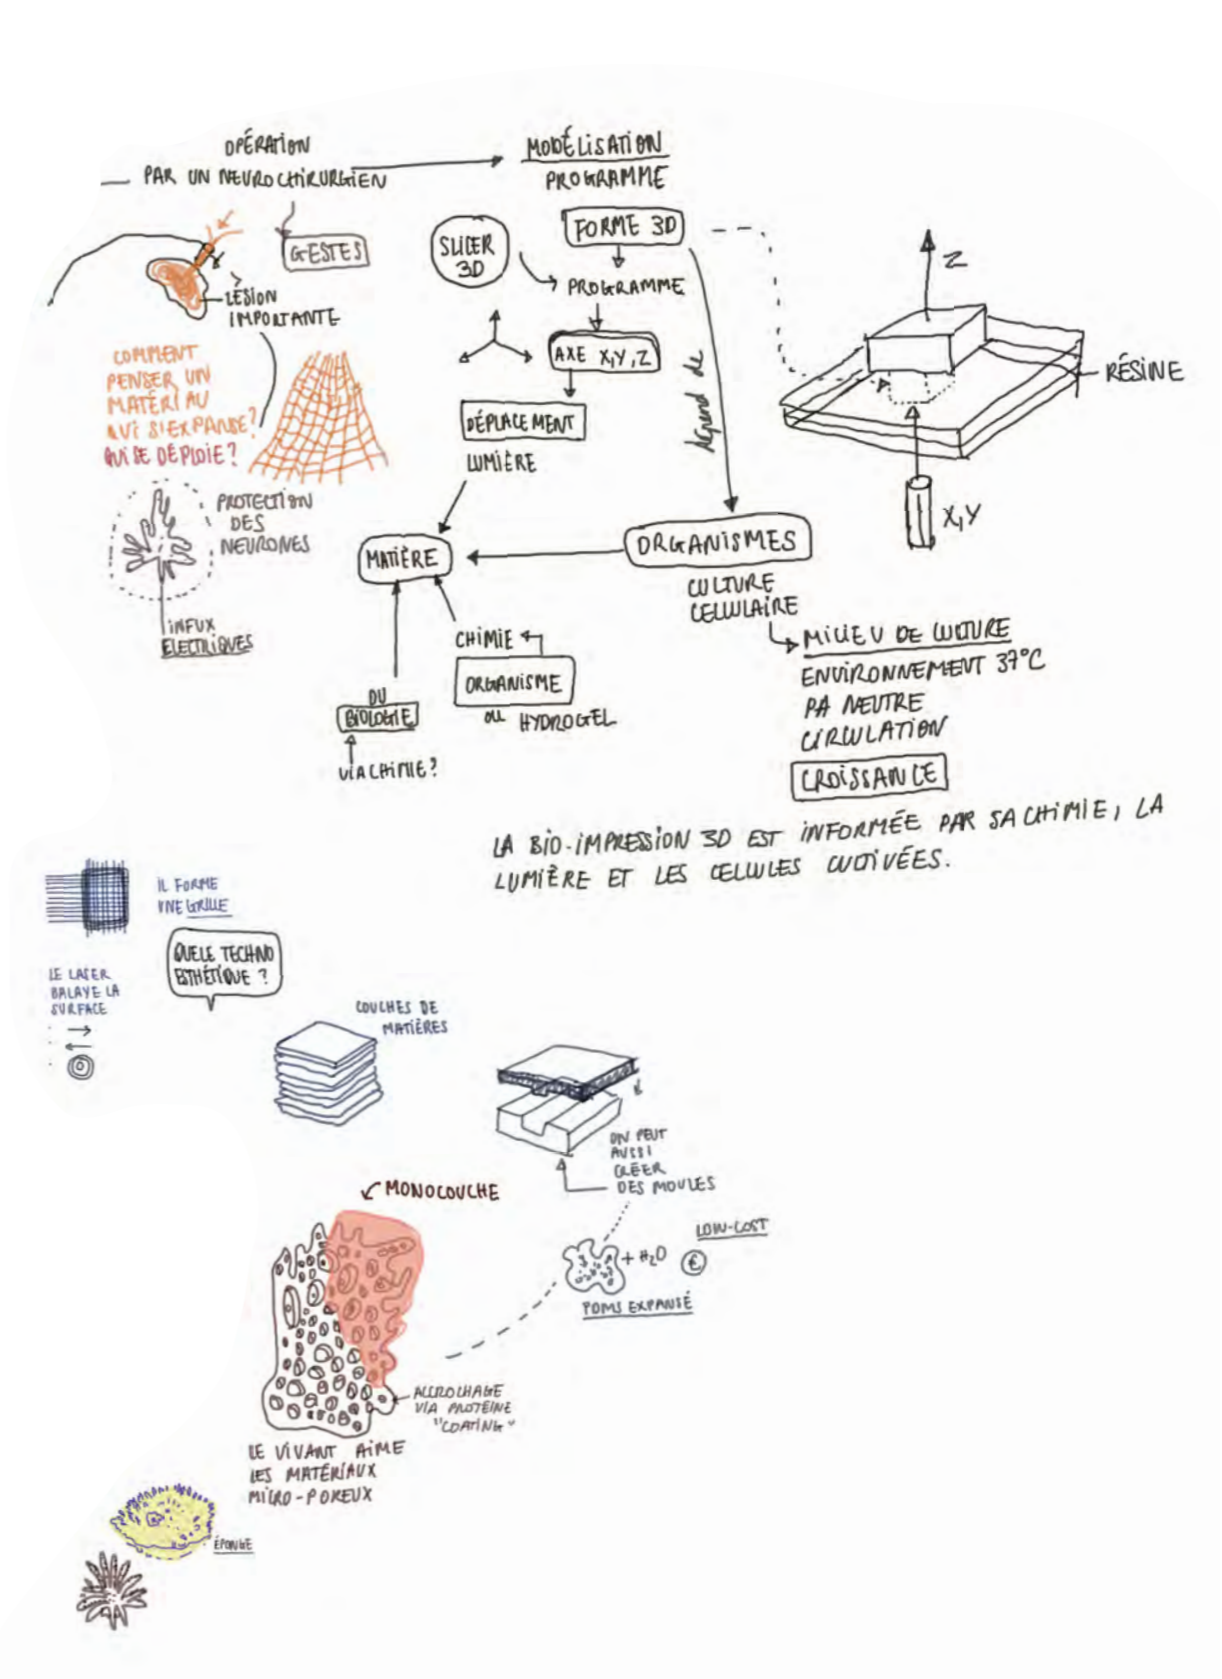 OPÉRATION
PAR UN NEUROCHIRURGIEN
GESTES
LÉSION
IMPORTANTE
COMMENT
PENSER UN
MATÉRIAU
QUI S'EXPANSE?
QUI SE DÉPLOIE?
PROTECTION
DES
NEURONES
INFUX
ÉLECTRIQUES
MODÉLISATION
PROGRAMME
SLICER
3D
FORME 3D
PROGRAMME
AXE X,Y,Z
DÉPLACEMENT
LUMIÈRE
dépend de
MATIÈRE
ORGANISMES
CULTURE
CELLULAIRE
MILIEU DE CULTURE
ENVIRONNEMENT 37°C
PA NEUTRE
CIRCULATION
CROISSANCE
CHIMIE
ORGANISME
ou HYDROGEL
DU
BIOLOGIE
VIA CHIMIE?
Z
RÉSINE
X,Y
LA BIO-IMPRESSION 3D EST INFORMÉE PAR SA CHIMIE, LA
LUMIÈRE ET LES CELLULES CULTIVÉES.
IL FORME
UNE GRILLE
QUELE TECHNO
ESTHÉTIQUE ?
LE LASER
BALAYE LA
SURFACE
COUCHES DE
MATIÈRES
ON PEUT
AUSSI
CRÉER
DES MOULES
MONOCOUCHE
LOW-COST
+ H₂O €
PDMS EXPANSÉ
ACCROCHAGE
VIA PROTÉINE
"COATING"
LE VIVANT AIME
LES MATÉRIAUX
MICRO-POREUX
ÉPONGE